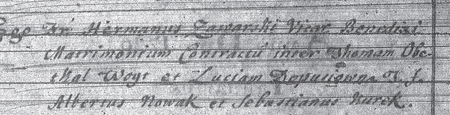 Fr Hermanus Zawarski Vicar. Benedixi
Matrimonium Contractũ inter Thomam Obe-
thal Woyt et Luciam T. f.
Albertus Nowak et Sebastianus Kurek.